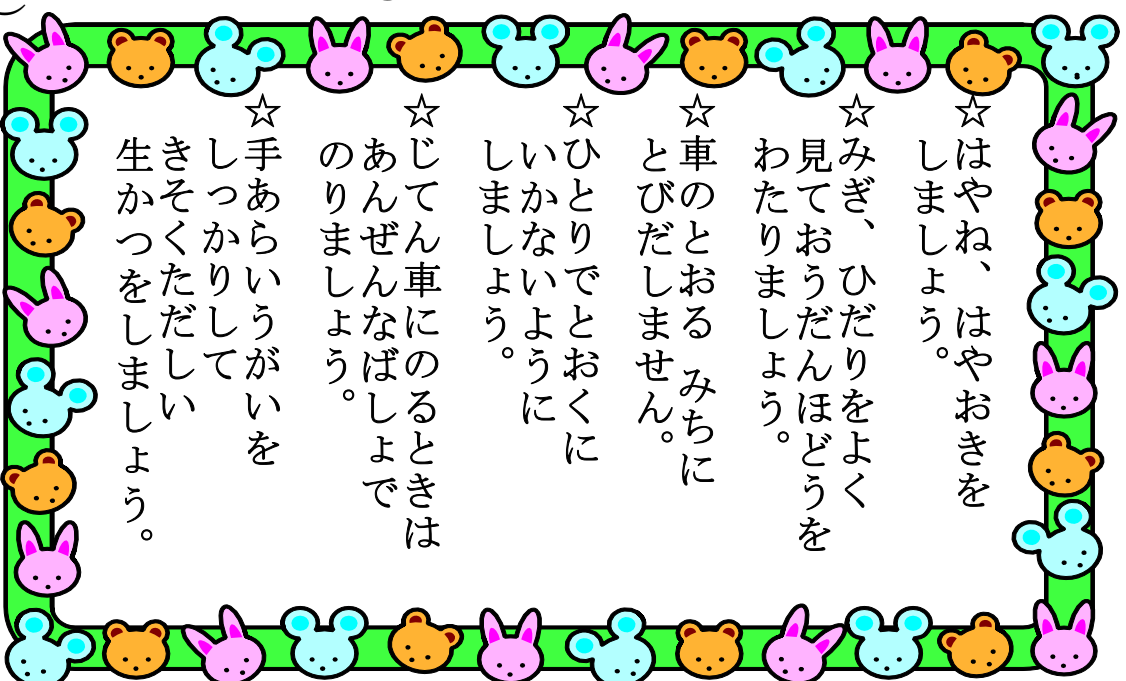 ☆はやね、はやおきを
しましょう。
☆みぎ、ひだりをよく
見ておうだんほどうを
わたりましょう。
☆車のとおる みちに
とびだしません。
☆ひとりでとおくに
いかないように
しましょう。
☆じてん車にのるときは
あんぜんなばしょで
のりましょう。
☆手あらいうがいを
しっかりして
きそくただしい
生かつをしましょう。